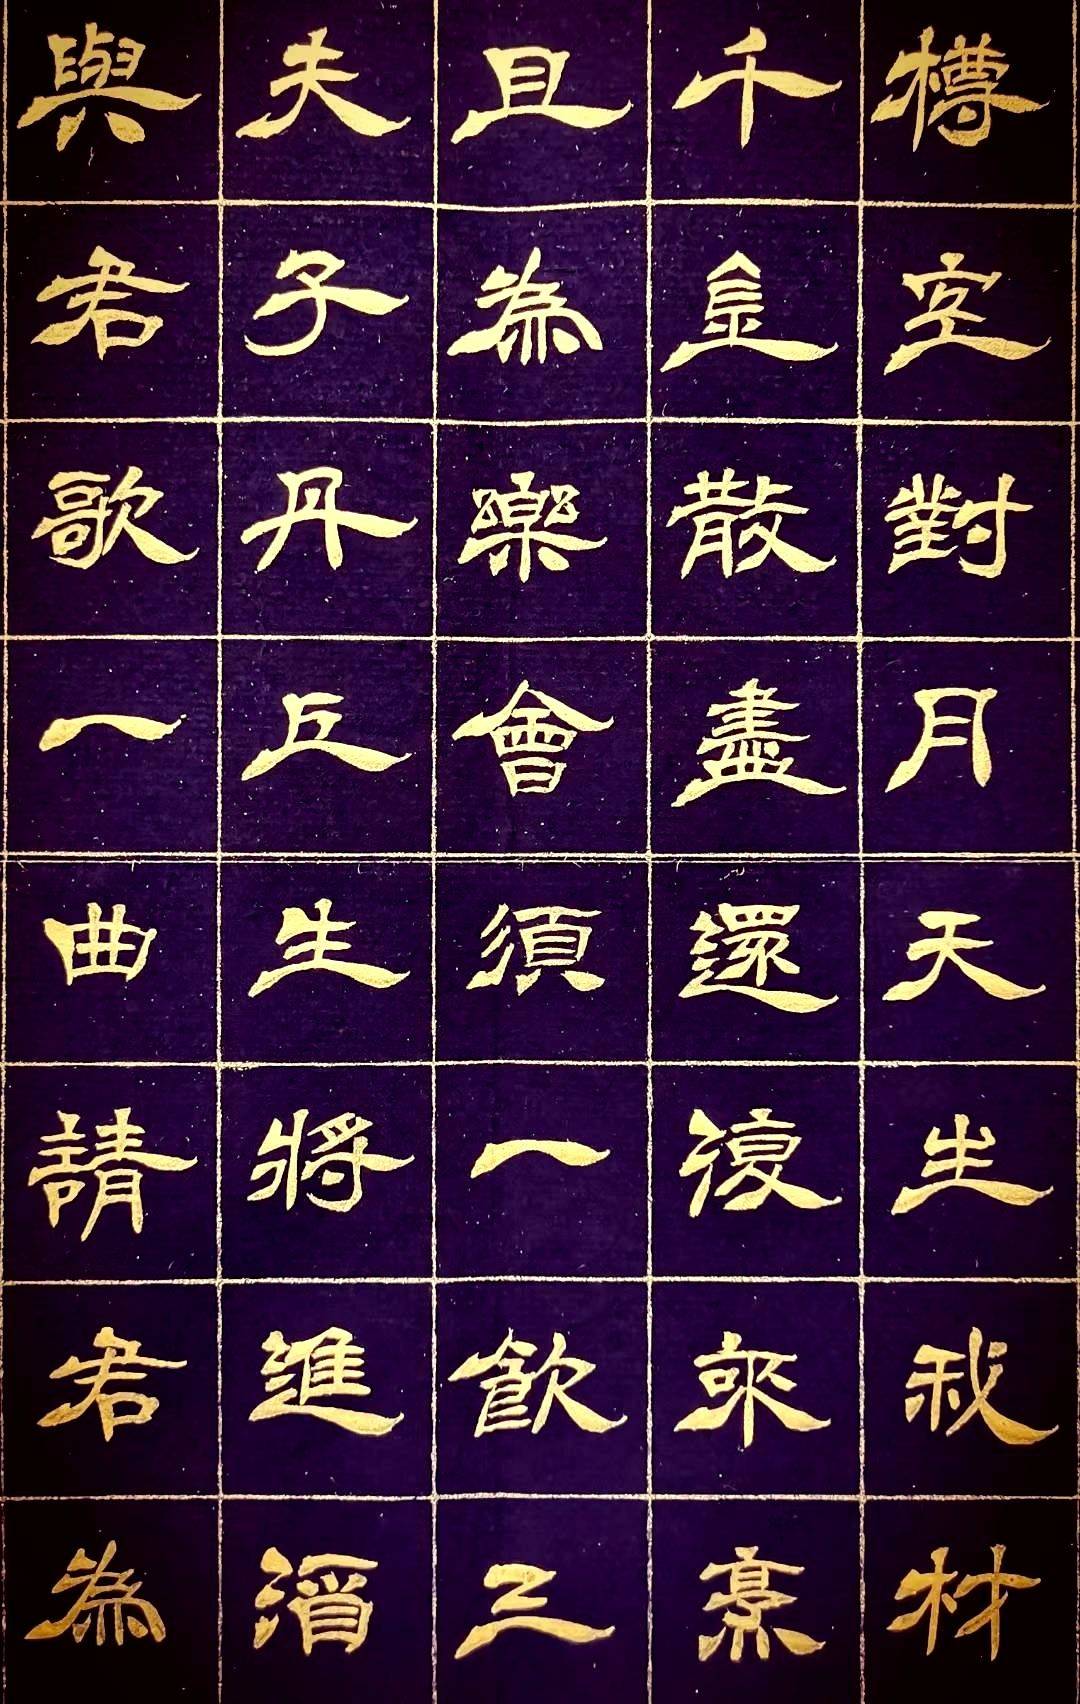 樽空對月天生我材
千金散盡還復來烹
且為樂會須一飲三
夫子丹丘生將進酒
與君歌一曲請君為